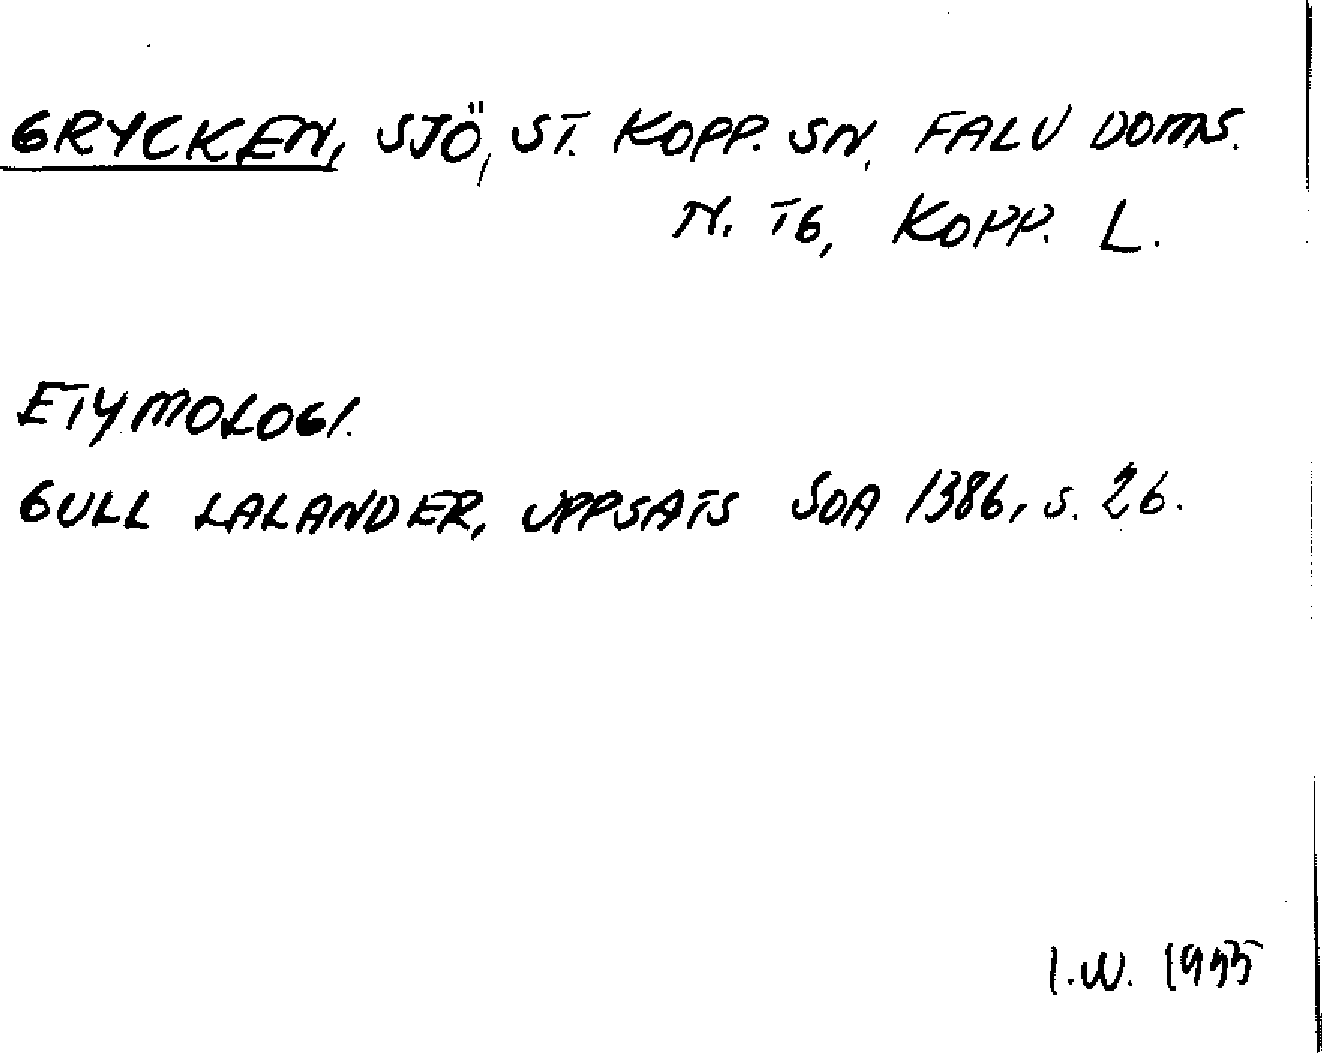 GRYCKEN, SJÖ, ST. KOPP. SN. FALU DOMS.
N. TG, KOPP. L.
ETYMOLOGI.
GULL LALANDER, UPPSATS SOA 1386, s. 26.
I.W. 1955